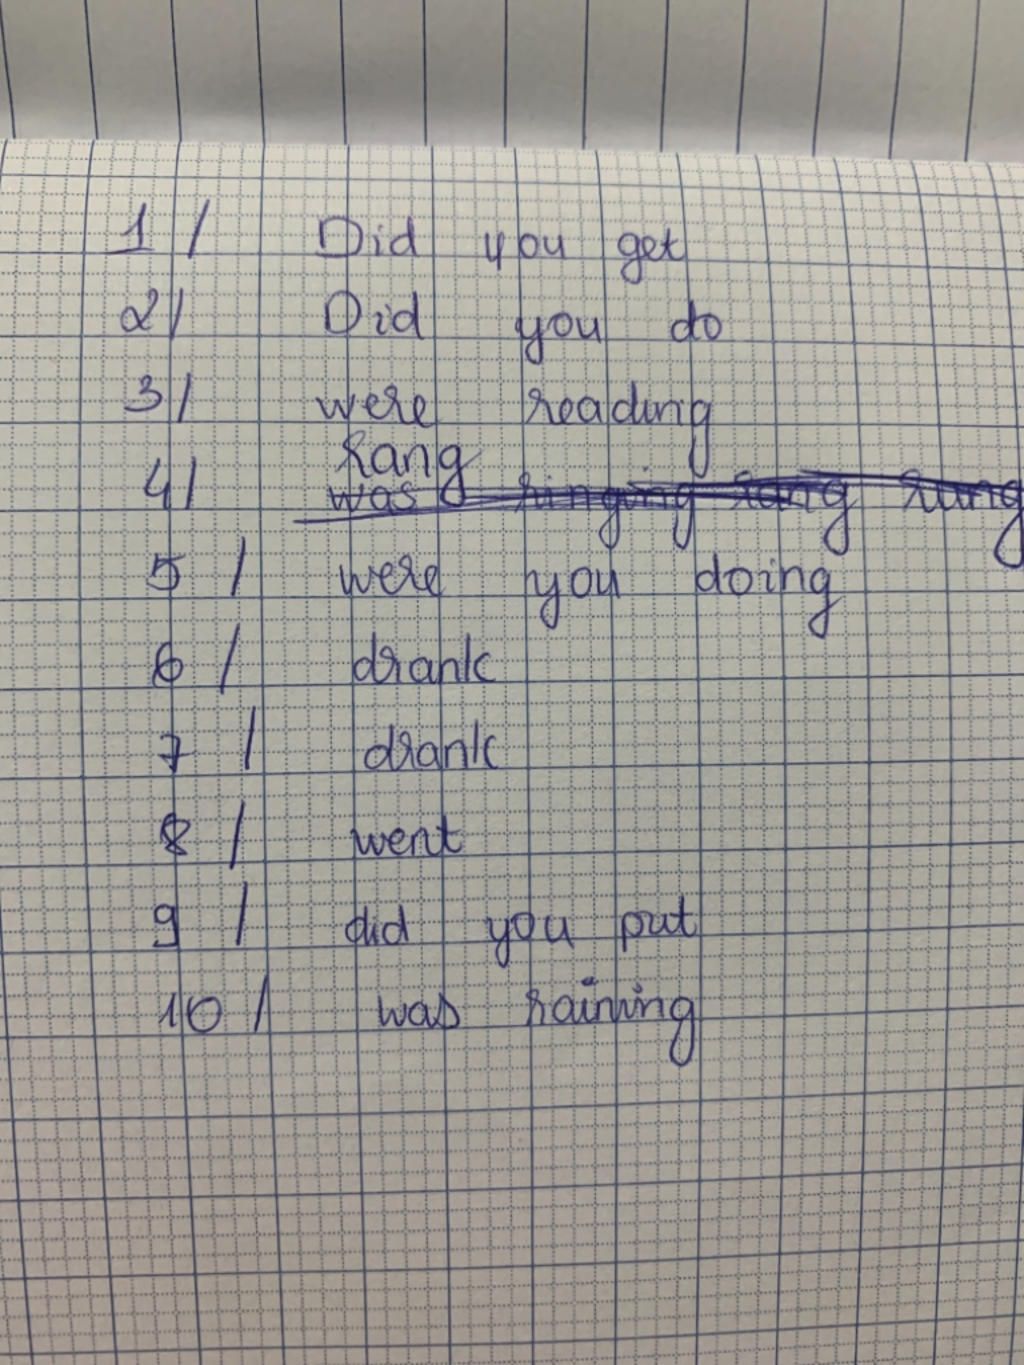 1/ Did you get
2/ Did you do
3/ were reading
rang
4/ was ringing rang rung
5/ were you doing
6/ drank
7/ drank
8/ went
9/ did you put
10/ was raining